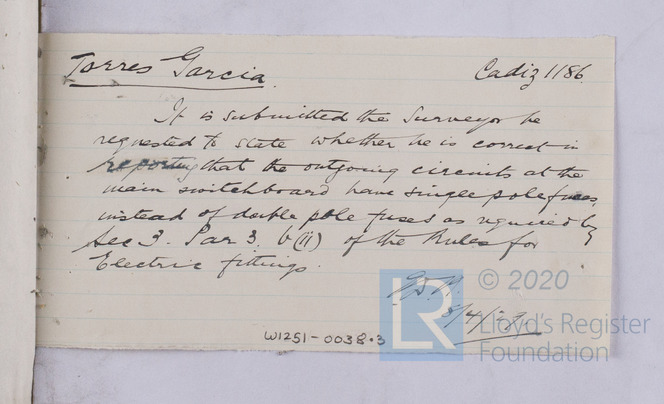 Torres Garcia. Cadiz 1186.
It is submitted the Surveyor be
requested to state whether he is correct in
reporting that the outgoing circuits at the
main switchboard have single pole fuses,
instead of double pole fuses as required by
Sec 3. Par 3. b(ii) of the Rules for
Electric fittings.
W1251-0038.3
LR © 2020
Lloyd's Register
Foundation